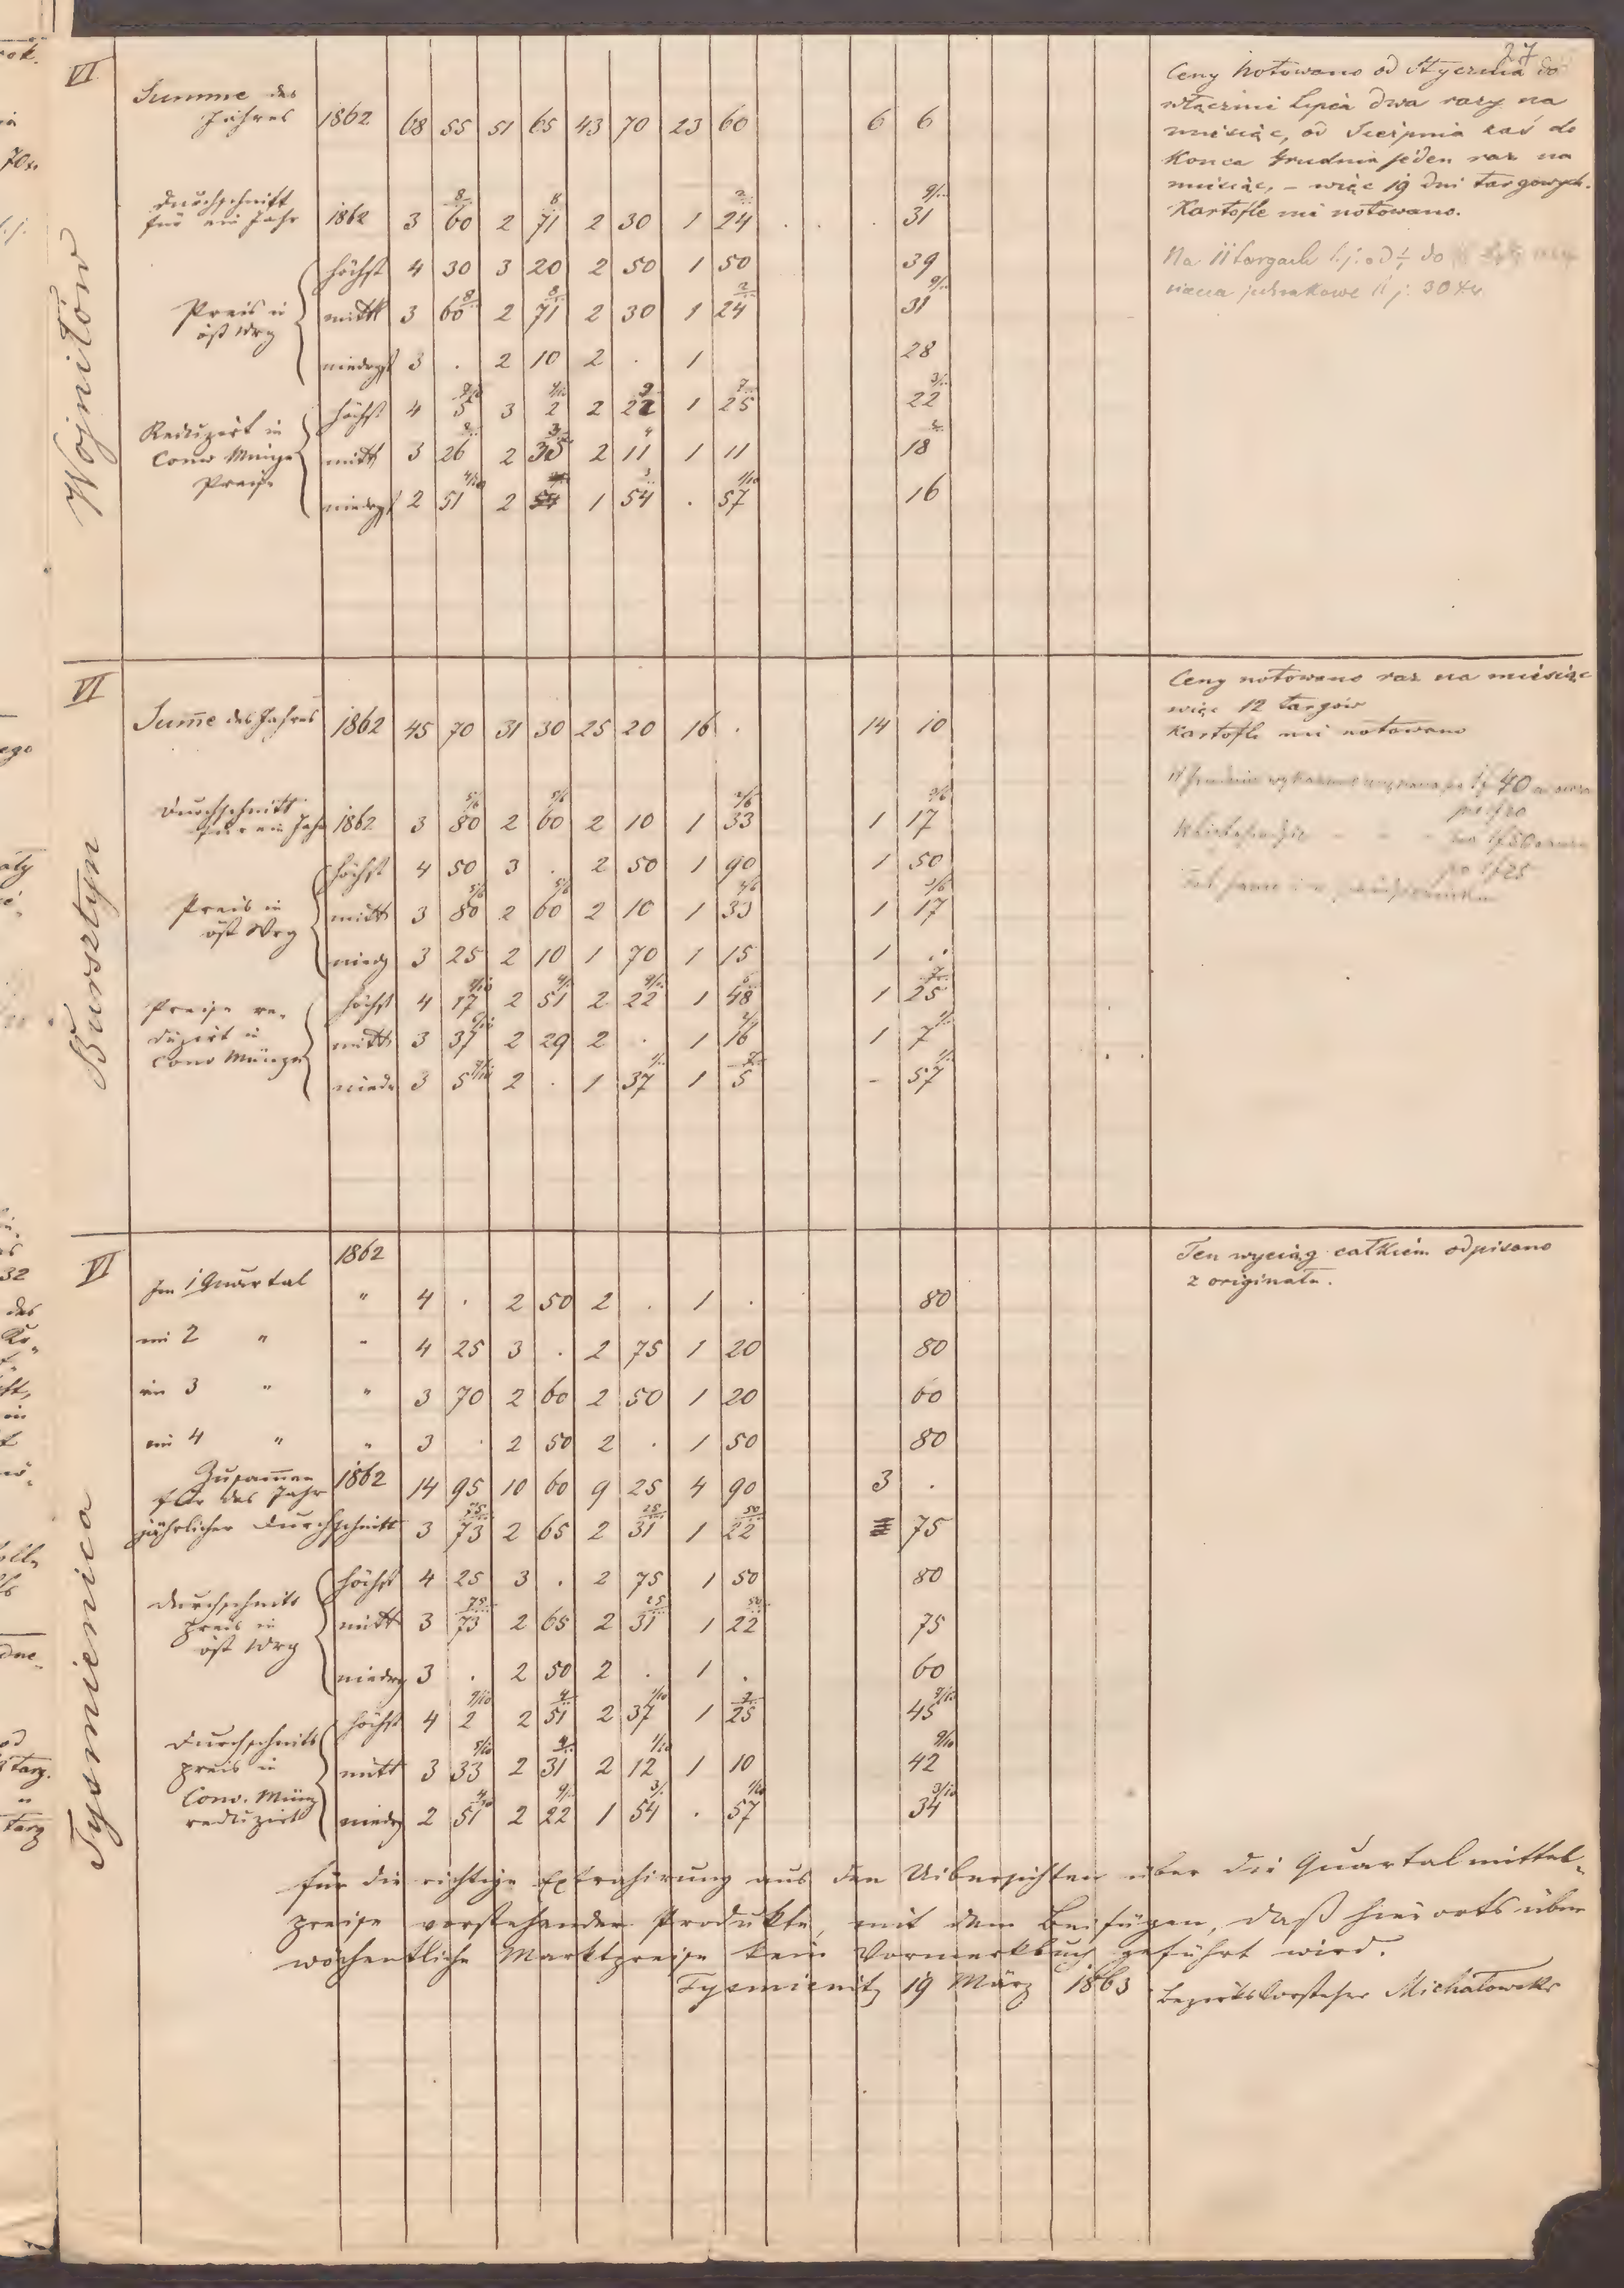 27
VI
Wojniłów
Summe des
Jahres 1862 68 55 51 65 43 70 23 60 6 6
Durchschnitt
für ein Jahr 1862 3 60 2 71 2 30 1 24 . . 31
Preis in
öst Wrg
höchst 4 30 3 20 2 50 1 50 39
mittl 3 60 2 71 2 30 1 24 31
niedrgst 3 . 2 10 2 . 1 28
Reduzirt in
Conv Münze
Preise
höchst 4 5 3 2 2 22 1 25 22
mittl 3 26 2 35 2 11 1 11 18
niedrgst 2 51 2 1 54 . 57 16
Ceny notowano od Stycznia do
włącznie Lipca dwa razy na
miesiąc, od Sierpnia zaś do
Konca Grudnia jeden raz na
miesiąc, – więc 19 dni targowych.
Kartofle nie notowano.
Na 11 targach t. j. od do
30 Xr
VI
Bursztyn
Sume des Jahres 1862 45 70 31 30 25 20 16 . 14 10
Durchschnitt
für ein Jahr 1862 3 80 5/6 2 60 5/6 2 10 1 33 2/6 1 17 3/6
Preis in
öst Wrg
höchst 4 50 3 . 2 50 1 90 1 50
mittl 3 80 5/6 2 60 5/6 2 10 1 33 2/6 1 17 3/6
niedg 3 25 2 10 1 70 1 15 1 .
Preise re-
duzirt in
Conv Münze
höchst 4 17 2 51 2 22 1 48 1 25
mittl 3 37 2 29 2 . 1 16 1 7
niedr 3 5 2 . 1 37 1 5 – 57
Ceny notowano raz na miesiąc
więc 12 targów
Kartofle nie notowano
VI
Tyśmienica
1862
Im 1 Quartal " 4 . 2 50 2 . 1 . 80
im 2 " " 4 25 3 . 2 75 1 20 80
im 3 " " 3 70 2 60 2 50 1 20 60
im 4 " " 3 . 2 50 2 . 1 50 80
Zusammen
für das Jahr 1862 14 95 10 60 9 25 4 90 3 .
jährlicher Durchschnitt 3 73 75 2 65 2 31 25 1 22 50 75
Durchschnitts
preis in
öst Wrg
höchst 4 25 3 . 2 75 1 50 80
mittl 3 73 75 2 65 2 31 25 1 22 50 75
niedrg 3 . 2 50 2 . 1 . 60
Durchschnitts
preis in
Conv. Münz
reduzirt
höchst 4 2 9/10 2 51 2 37 1/10 1 25 45 9/10
mittl 3 33 5/10 2 31 2 12 1/10 1 10 42 9/10
niedrg 2 51 4/10 2 22 1 54 . 57 1/10 34 3/10
Ten wyciąg całkiem odpisano
z originału.
für die richtige Extrahirung aus den Uibersichten über die Quartalmittel-
preise vorstehender Produkte, mit dem Beifügen, daß hierorts über
wöchentliche Marktpreise kein Vormerkbuch geführt wird.
Tysmienitz 19 März 1863 Bezirksvorsteher Michałowski